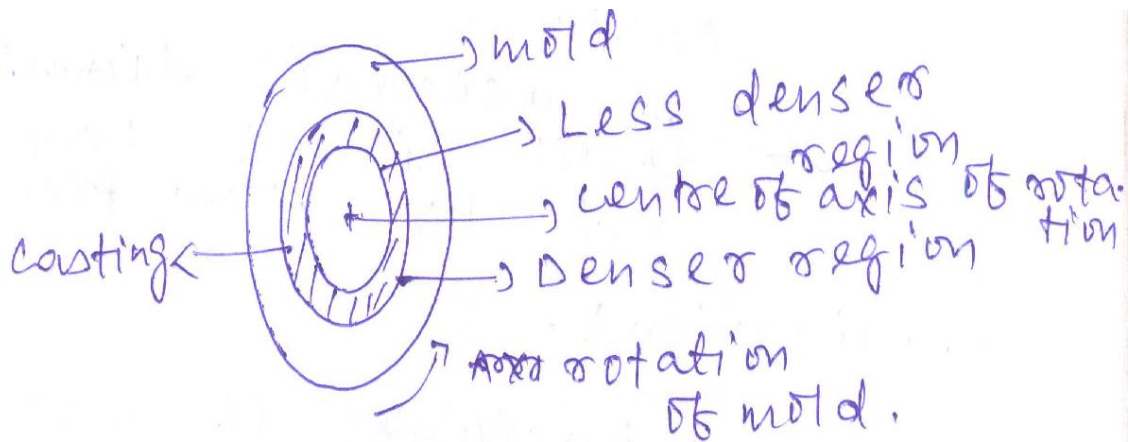 mold
Less denser
region
centre of axis of rota-
tion
casting
Denser region
rotation
of mold.